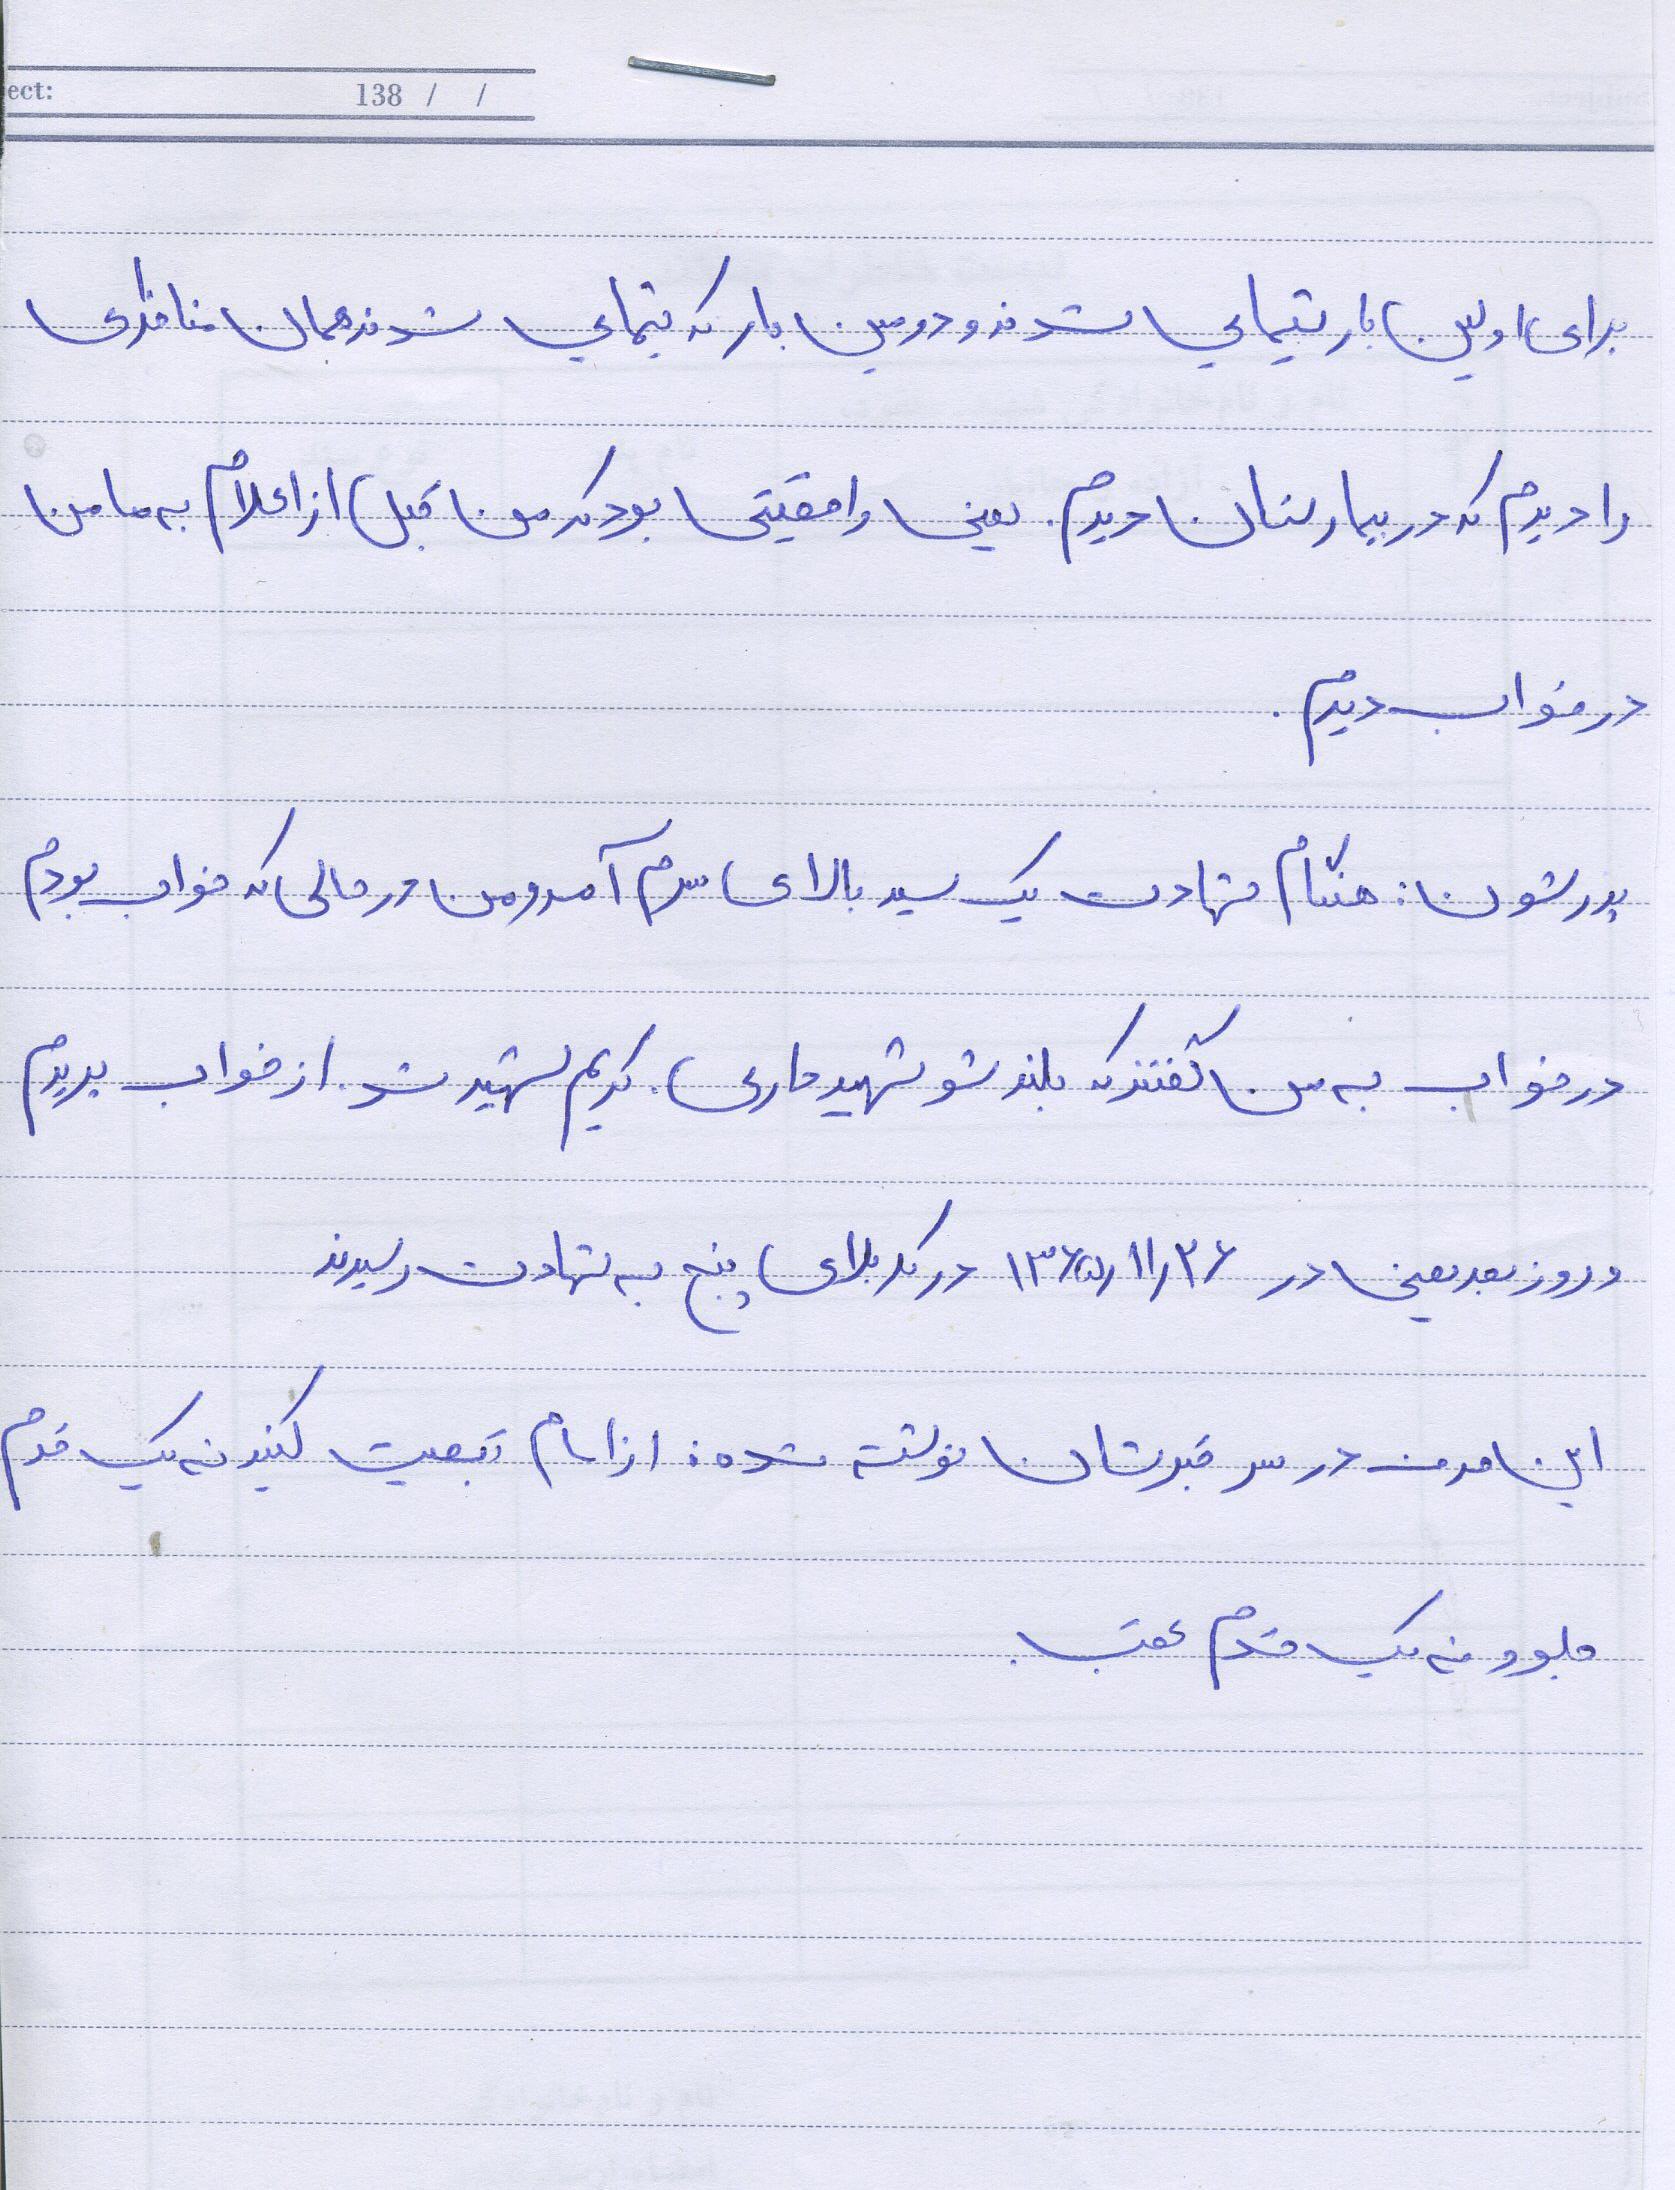 ect: 138 / /
برای اولین بار شیمیایی شدند و دومین بار که شیمیایی شدند همان مناظری
را دیدم که در بیمارستان دیدم. یعنی واقعیتی بود که من قبل از اعلام به ما من
در خواب دیدم.
پدرشون: هنگام شهادت یک سید بالای سرم آمد و من در حالی که خواب بودم
در خواب به من گفتند که بلند شو شهید داری. کریم شهید شد. از خواب پریدم
و روز بعد یعنی در ۱۳۶۵/۱۱/۲۶ در کربلای پنج به شهادت رسیدند
این مدت در سر قبرشان نوشته شده: از امام تبعیت کنید نه یک قدم
جلو و نه یک قدم عقب.